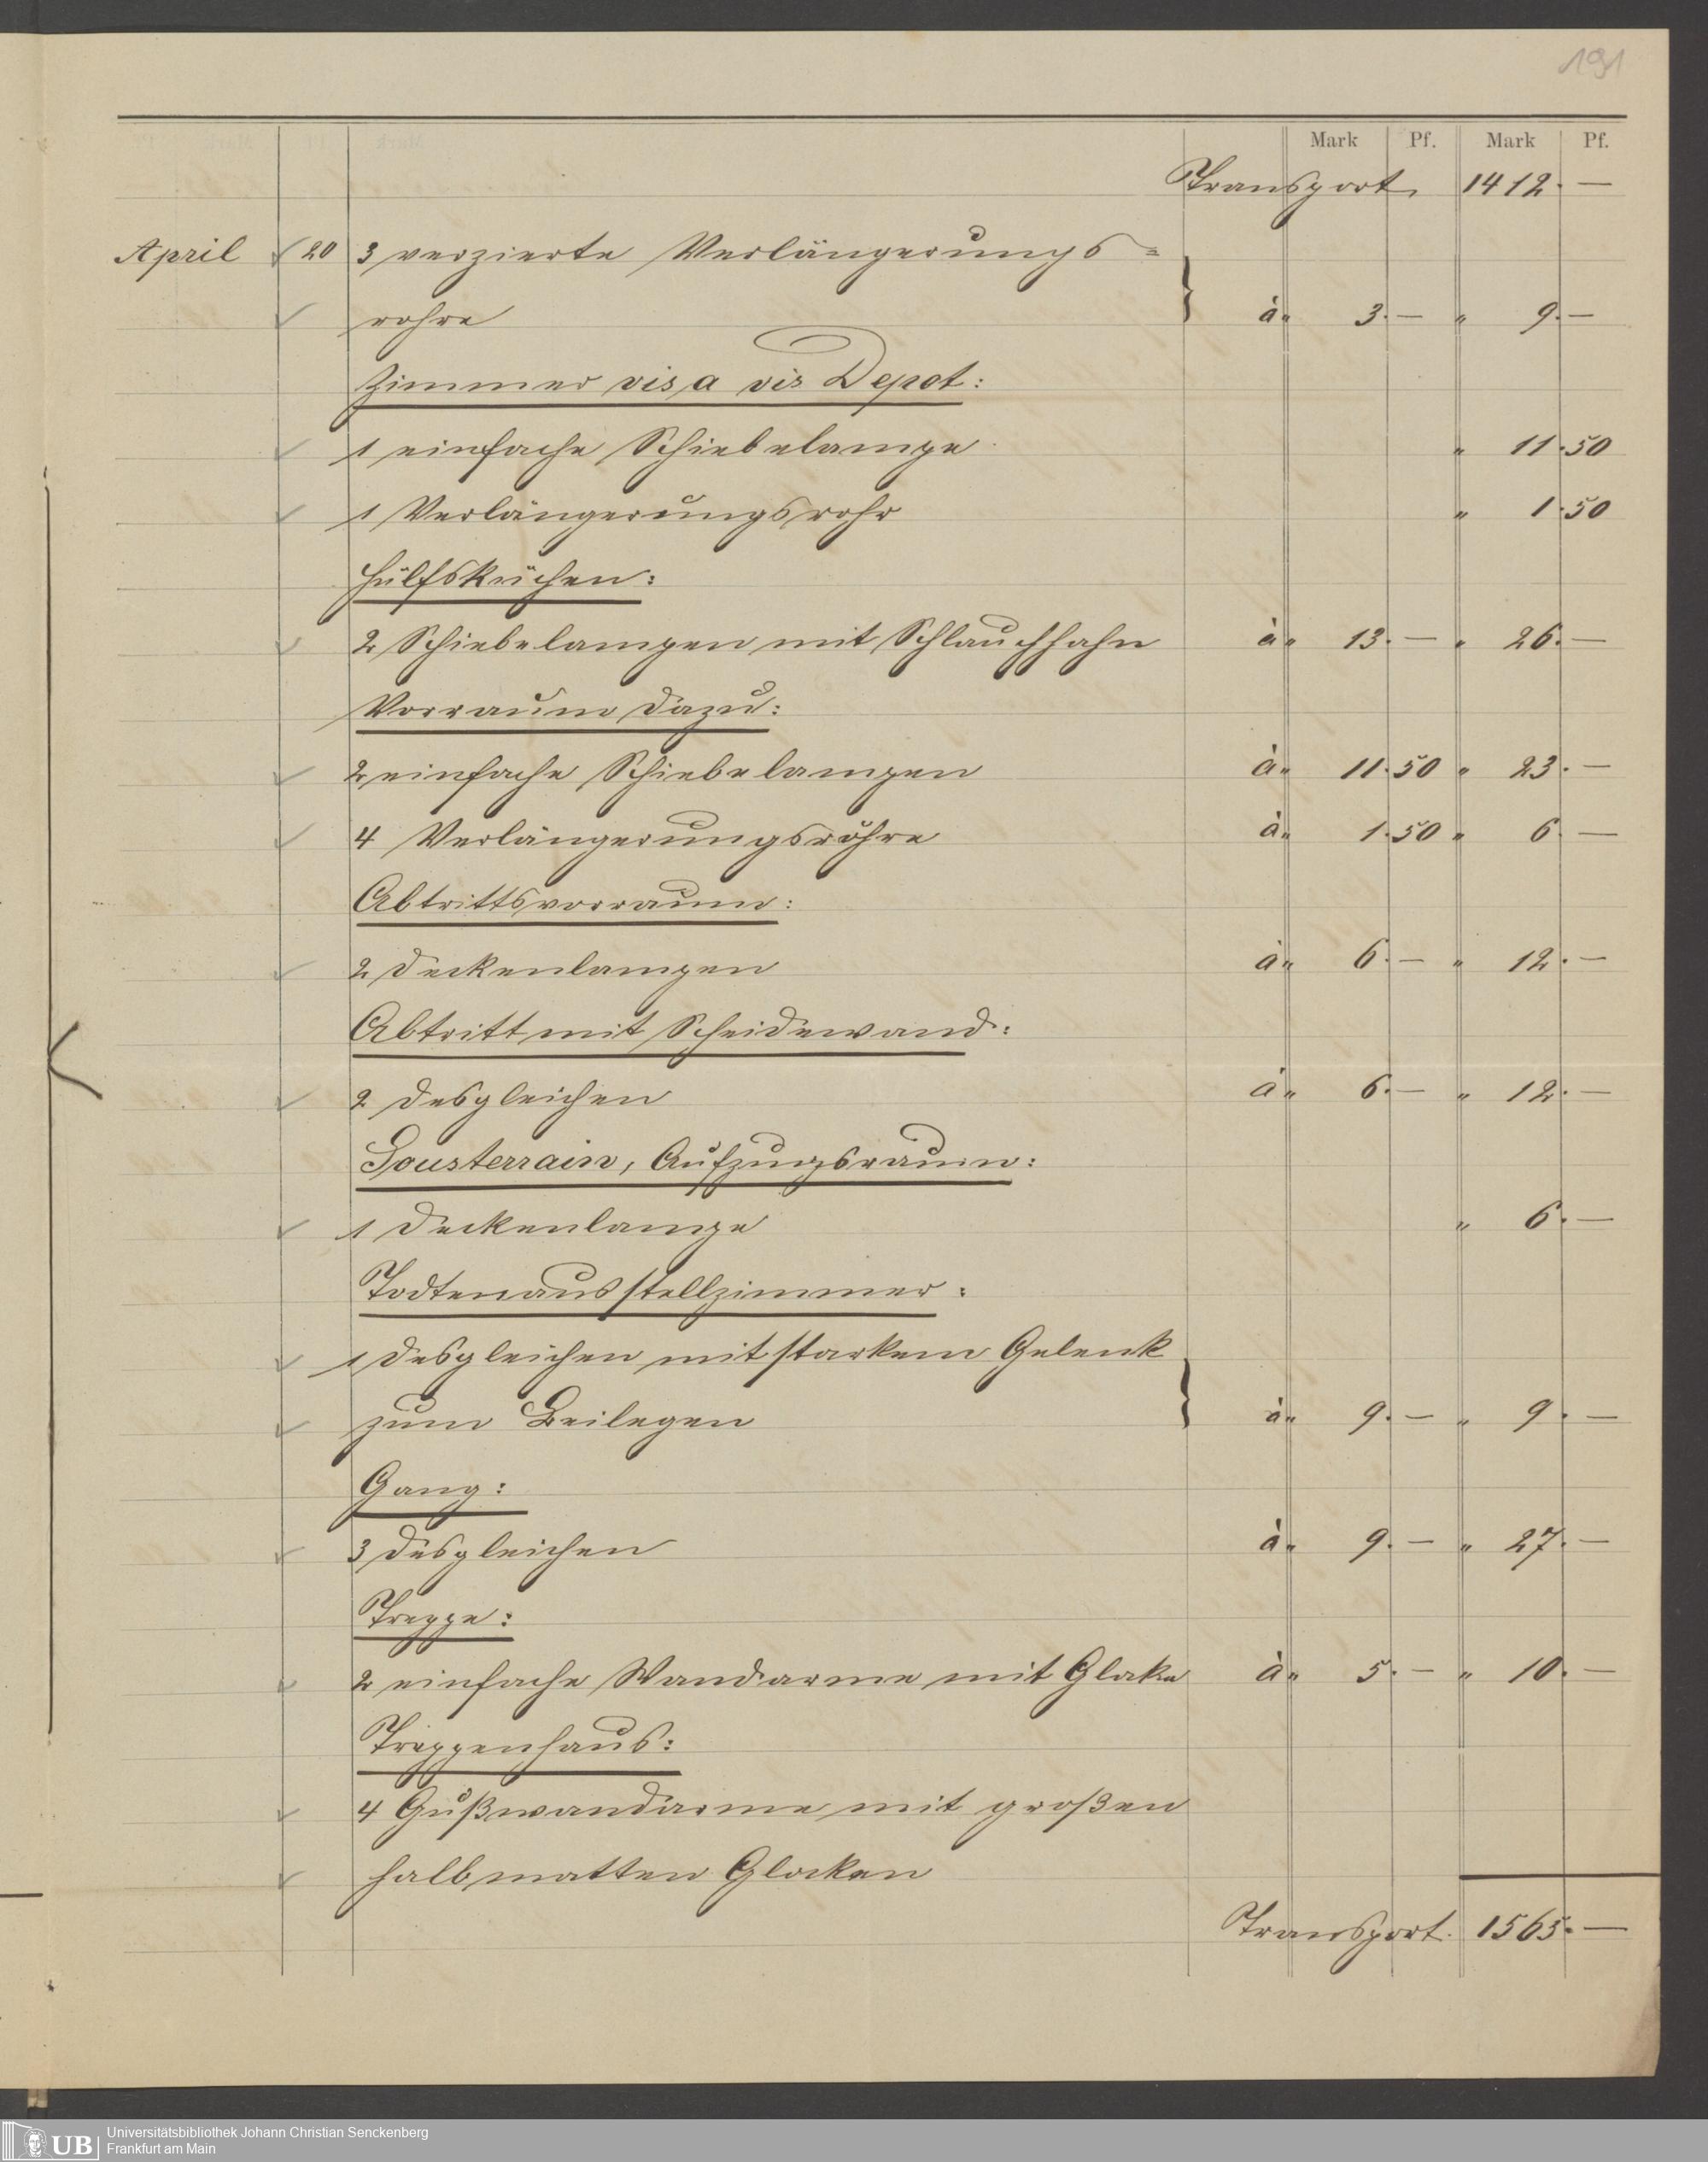 191
Mark Pf. Mark Pf.
Transport 1412. —
April 20 3 verzierte Verlängerungs=
rohre à „ 3. — „ 9. —
Zimmer vis a vis Depot:
1 einfache Schiebelampe „ 11. 50
1 Verlängerungsrohr „ 1. 50
Hülfsküchen:
2 Schiebelampen mit Schlauchhahn à „ 13. — „ 26. —
Vorraum dazu:
2 einfache Schiebelampen à „ 11. 50 „ 23. —
4 Verlängerungsrohre à „ 1. 50 „ 6. —
Abtrittsvorraum:
2 Deckenlampen à „ 6. — „ 12. —
Abtritt mit Scheidewand:
2 desgleichen à „ 6. — „ 12. —
Sousterrain, Aufzugsraum:
1 Deckenlampe „ 6. —
Todtenausstellzimmer:
1 desgleichen mit starkem Gelenk
zum Beilegen à „ 9. — „ 9. —
Gang:
3 desgleichen à „ 9. — „ 27. —
Treppe:
2 einfache Wandarme mit Glocke à „ 5. — „ 10. —
Treppenhaus:
4 Gußwandarme mit großen
halbmatten Glocken
Transport. 1565. —
UB Universitätsbibliothek Johann Christian Senckenberg
Frankfurt am Main